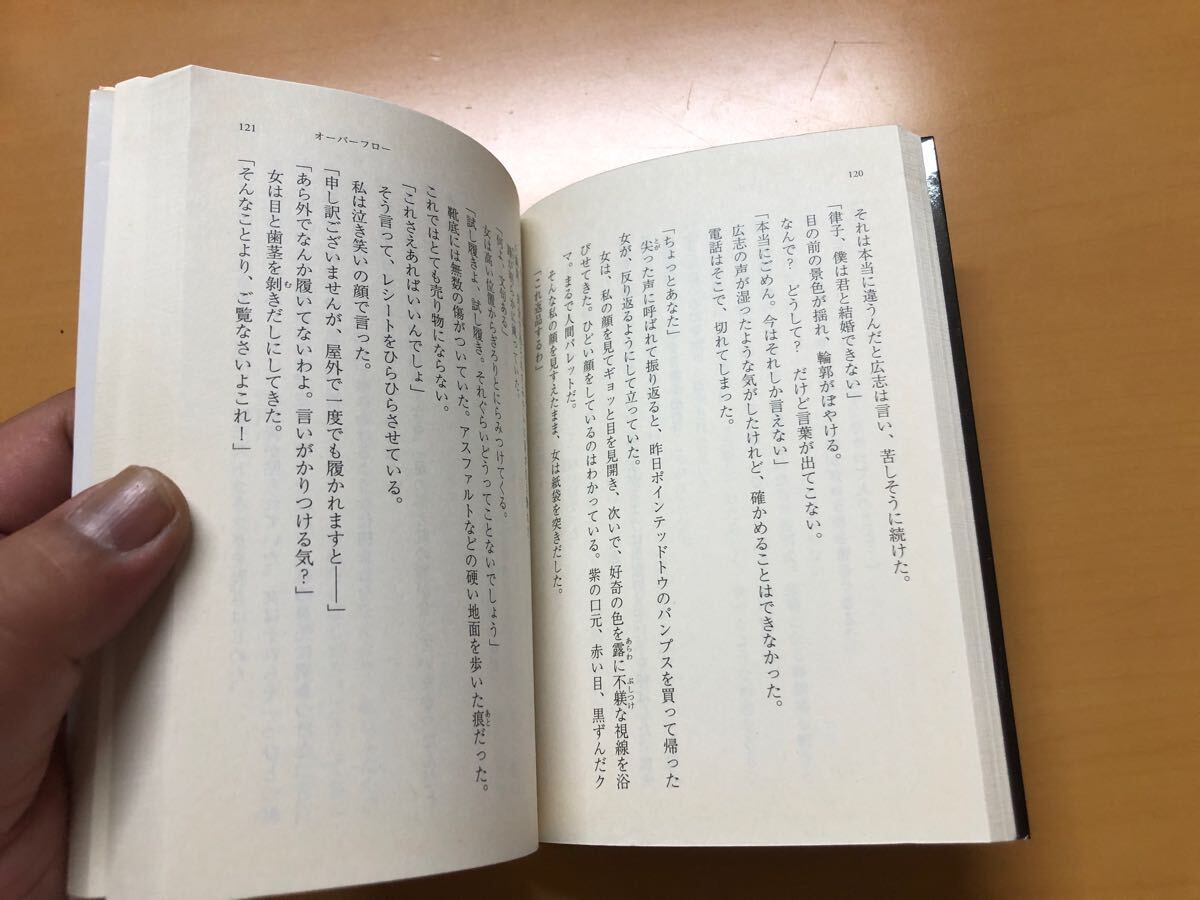 120
それは本当に違うんだと広志は言い、苦しそうに続けた。
「律子、僕は君と結婚できない」
目の前の景色が揺れ、輪郭がぼやける。
なんで? どうして? だけど言葉が出てこない。
「本当にごめん。今はそれしか言えない」
広志の声が湿ったような気がしたけれど、確かめることはできなかった。
電話はそこで、切れてしまった。
「ちょっとあなた」
尖った声に呼ばれて振り返ると、昨日ポインテッドトウのパンプスを買って帰った
とが
女が、反り返るようにして立っていた。
女は、私の顔を見てギョッと目を見開き、次いで、好奇の色を露に不躾な視線を浴
あらわ ぶしつけ
びせてきた。ひどい顔をしているのはわかっている。紫の口元、赤い目、黒ずんだク
マ。まるで人間パレットだ。
そんな私の顔を見すえたまま、女は紙袋を突きだした。
「これ返品するわ」
121
オーバーフロー
「何よ、文句ある」
女は高い位置からぎろりとにらみつけてくる。
「試し履きよ、試し履き。それぐらいどうってことないでしょう」
靴底には無数の傷がついていた。アスファルトなどの硬い地面を歩いた痕だった。
あと
これではとても売り物にならない。
「これさえあればいいんでしょ」
そう言って、レシートをひらひらさせている。
私は泣き笑いの顔で言った。
「申し訳ございませんが、屋外で一度でも履かれますと――」
「あら外でなんか履いてないわよ。言いがかりつける気?」
女は目と歯茎を剝きだしにしてきた。
む
「そんなことより、ご覧なさいよこれ!」